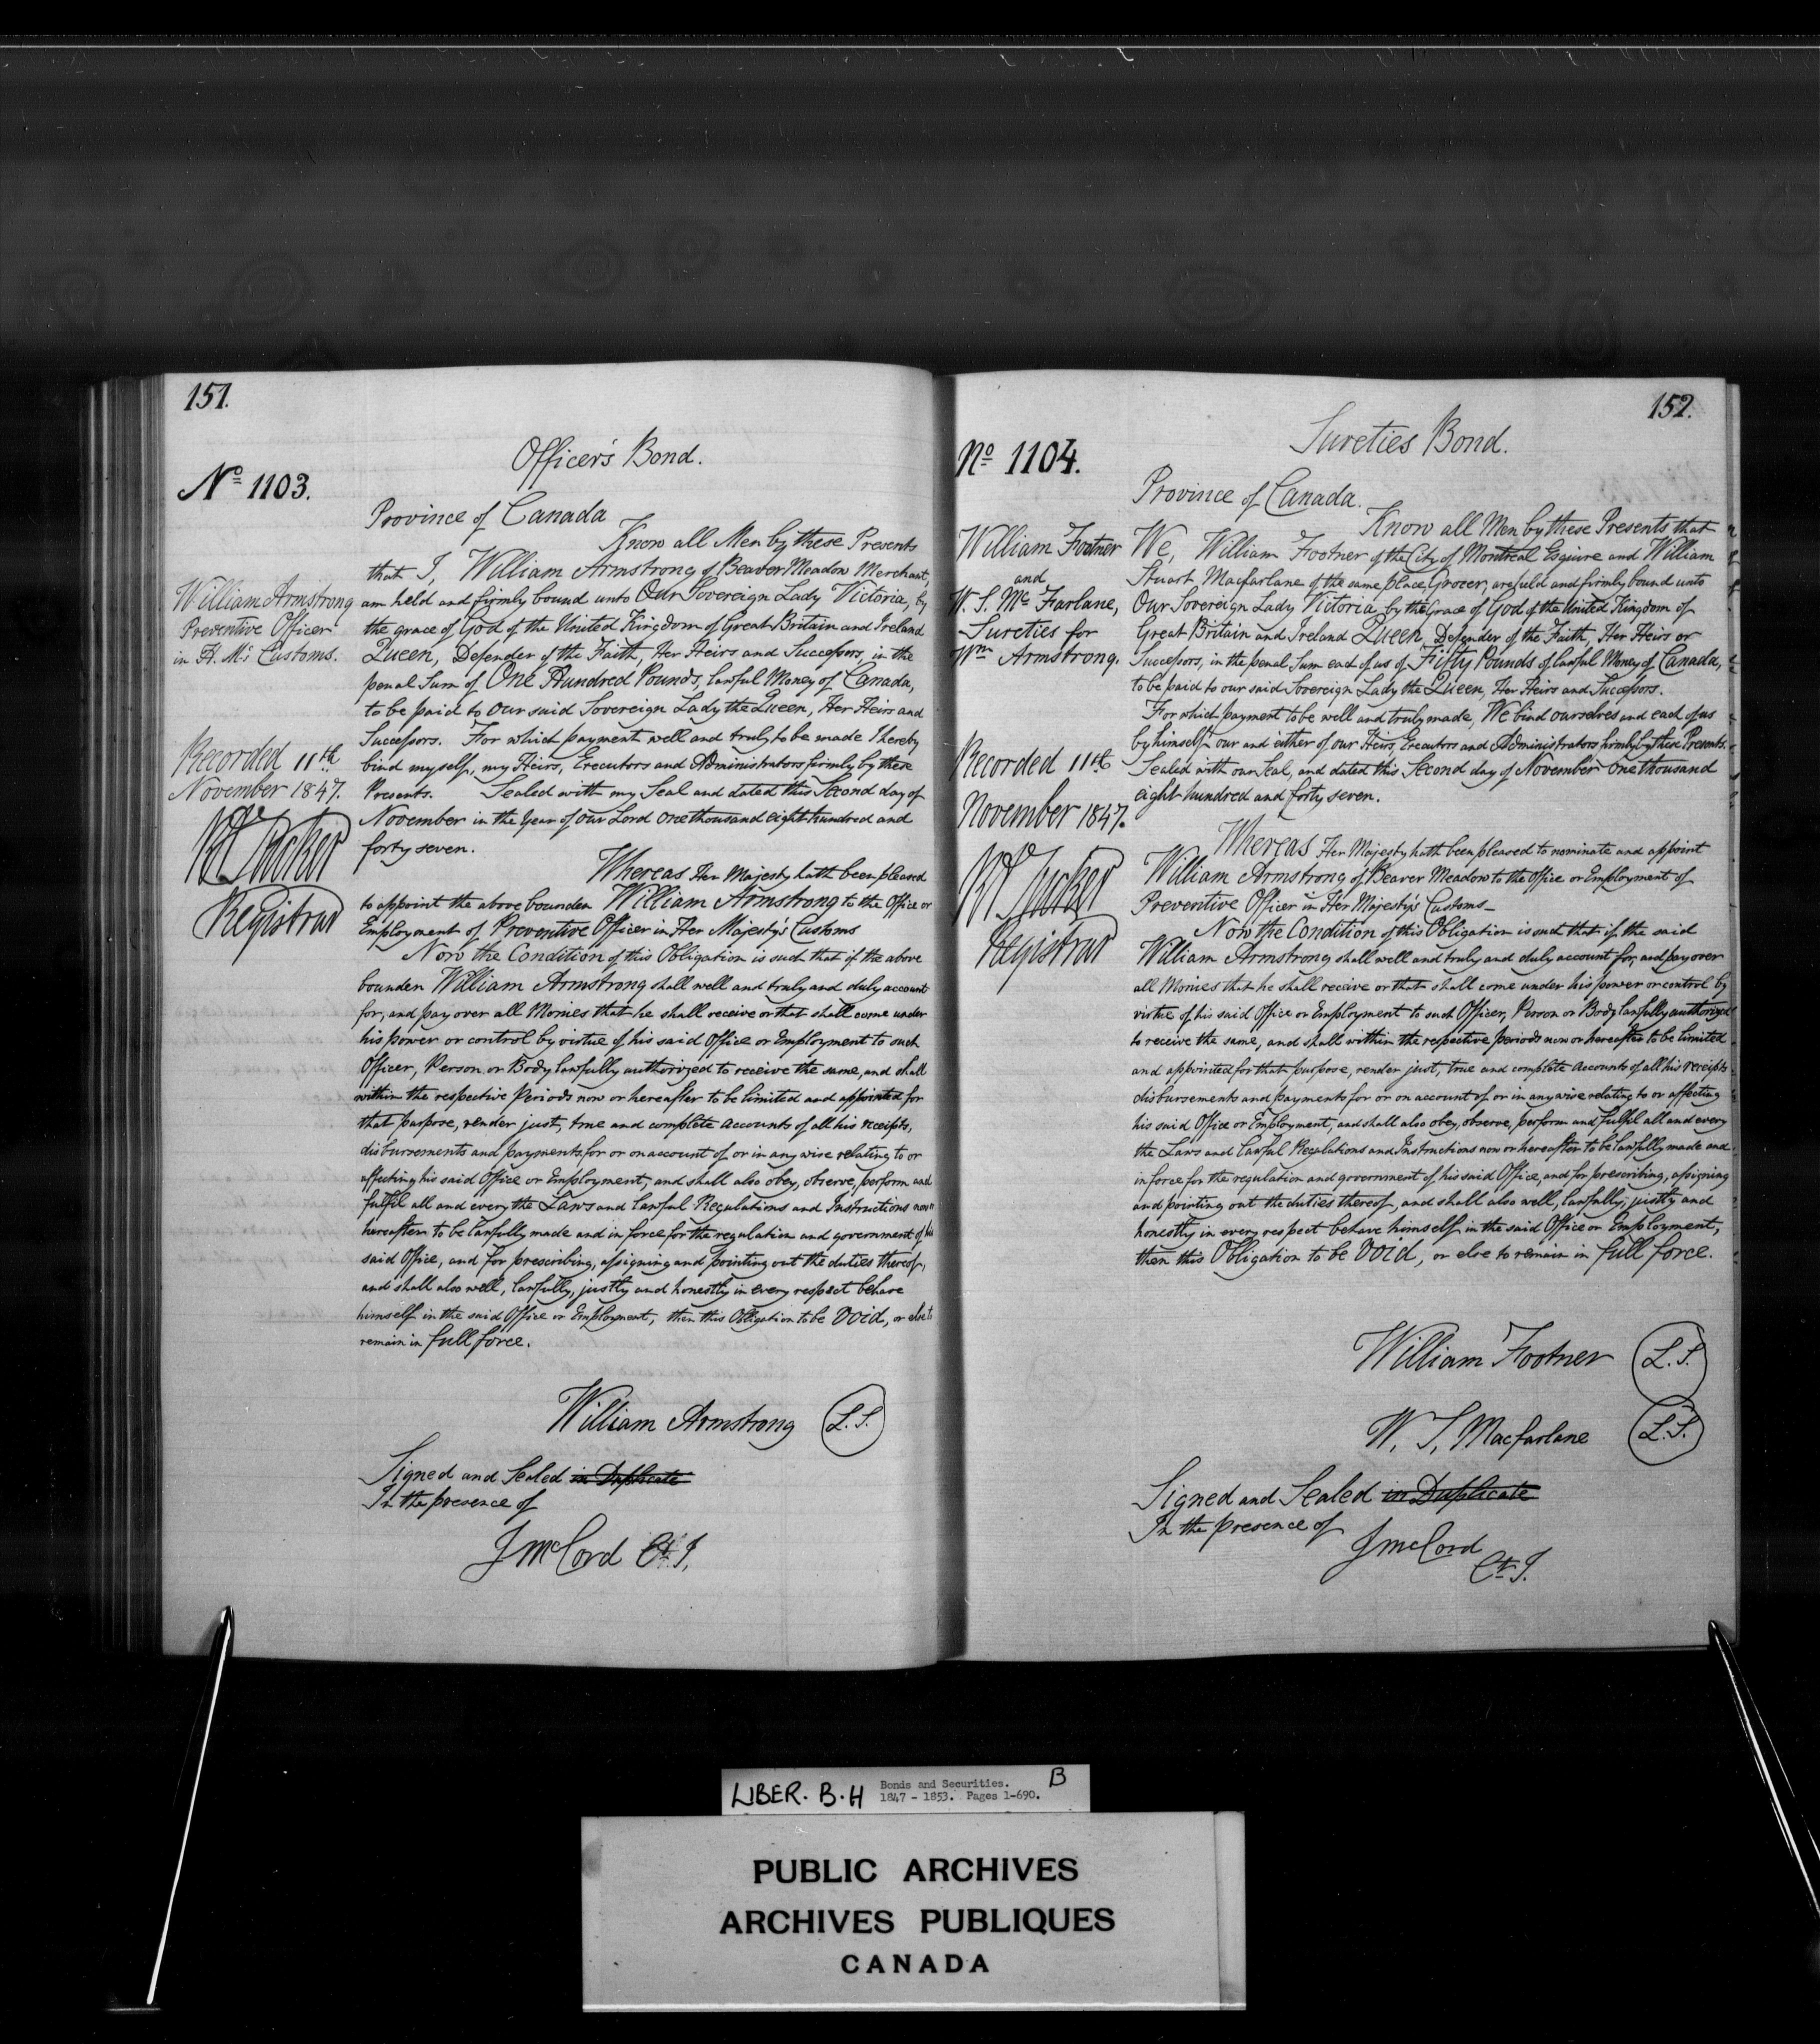 151.
Officer's Bond.
No 1103.
Province of Canada
Know all Men by these Presents
that I, William Armstrong of Beaver Meadow Merchant,
William Armstrong
Preventive Officer
in H. M's Customs.
am held and firmly bound unto Our Sovereign Lady Victoria, by
the grace of God of the United Kingdom of Great Britain and Ireland
Queen, Defender of the Faith, Her Heirs and Successors, in the
penal Sum of One Hundred Pounds, lawful Money of Canada,
to be paid to Our said Sovereign Lady the Queen, Her Heirs and
Successors. For which payment well and truly to be made I hereby
Recorded 11th
November 1847.
bind myself, my Heirs, Executors and Administrators firmly by these
Presents. Sealed with my Seal and dated this Second day of
November in the Year of Our Lord One thousand eight hundred and
forty seven.
Tucker
Registrar
Whereas Her Majesty hath been pleased
to appoint the above bounden William Armstrong to the Office or
Employment of Preventive Officer in Her Majesty's Customs
Now the Condition of this Obligation is such that if the above
bounden William Armstrong shall well and truly and duly account
for, and pay over all Monies that he shall receive or that shall come under
his power or control by virtue of his said Office or Employment to such
Officer, Person or Body lawfully authorized to receive the same, and shall
within the respective Periods now or hereafter to be limited and appointed for
that purpose, render just, true and complete accounts of all his receipts,
disbursements and payments for or on account of or in any wise relating to or
affecting his said Office or Employment, and shall also obey, observe, perform and
fulfil all and every the Laws and lawful Regulations and Instructions now or
hereafter to be lawfully made and in force for the regulation and government of his
said Office, and for prescribing, assigning and pointing out the duties thereof,
and shall also well, lawfully, justly and honestly in every respect behave
himself in the said Office or Employment, then this Obligation to be Void, or else to
remain in full force.
William Armstrong L.S.
Signed and Sealed in Duplicate
In the presence of
J McCord Ct. J.
152.
Sureties Bond.
No 1104.
Province of Canada.
Know all Men by these Presents that
William Footner
and
W. S. Mc Farlane,
Sureties for
Wm Armstrong.
We, William Footner of the City of Montreal Esquire and William
Stuart Macfarlane of the same place, Grocer, are held and firmly bound unto
Our Sovereign Lady Victoria by the Grace of God of the United Kingdom of
Great Britain and Ireland Queen, Defender of the Faith, Her Heirs or
Successors, in the penal Sum each of us of Fifty Pounds of lawful Money of Canada,
to be paid to our said Sovereign Lady the Queen, Her Heirs and Successors.
For which payment to be well and truly made, We bind ourselves and each of us
by himself our and either of our Heirs, Executors and Administrators firmly by these Presents.
Recorded 11th
November 1847.
Sealed with our Seal, and dated this Second day of November One thousand
eight hundred and forty seven.
Tucker
Registrar
Whereas Her Majesty hath been pleased to nominate and appoint
William Armstrong of Beaver Meadow to the Office or Employment of
Preventive Officer in Her Majesty's Customs—
Now the Condition of this Obligation is such that if the said
William Armstrong shall well and truly and duly account for, and pay over
all Monies that he shall receive or that shall come under his power or control by
virtue of his said Office or Employment to such Officer, Person or Body lawfully authorized
to receive the same, and shall within the respective periods now or hereafter to be limited
and appointed for that purpose, render just, true and complete accounts of all his receipts
disbursements and payments for or on account of or in any wise relating to or affecting
his said Office or Employment, and shall also obey, observe, perform and fulfil all and every
the Laws and lawful Regulations and Instructions now or hereafter to be lawfully made and
in force for the regulation and government of his said Office, and for prescribing, assigning
and pointing out the duties thereof, and shall also well, lawfully, justly and
honestly in every respect behave himself in the said Office or Employment,
then this Obligation to be Void, or else to remain in full force.
William Footner L.S.
W. S. Macfarlane L.S.
Signed and Sealed in Duplicate
In the presence of
J McCord
Ct J.
LIBER. B.H Bonds and Securities. B
1847 - 1853. Pages 1-690.
PUBLIC ARCHIVES
ARCHIVES PUBLIQUES
CANADA